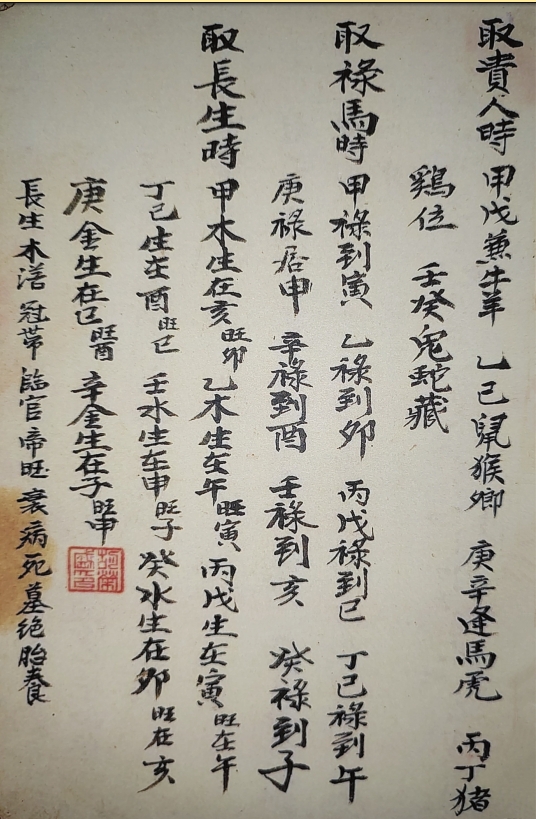 取貴人時 甲戊兼牛羊 乙己鼠猴鄉 庚辛逢馬虎 丙丁猪
鷄位 壬癸兔蛇藏
取祿馬時 甲祿到寅 乙祿到卯 丙戊祿到巳 丁己祿到午
庚祿居申 辛祿到酉 壬祿到亥 癸祿到子
取長生時 甲木生在亥旺卯 乙木生在午旺寅 丙戊生在寅旺在午
丁己生在酉旺巳 壬水生在申旺子 癸水生在卯旺在亥
庚金生在巳旺酉 辛金生在子旺申
長生 沐浴 冠帶 臨官 帝旺 衰 病 死 墓 絕 胎 養